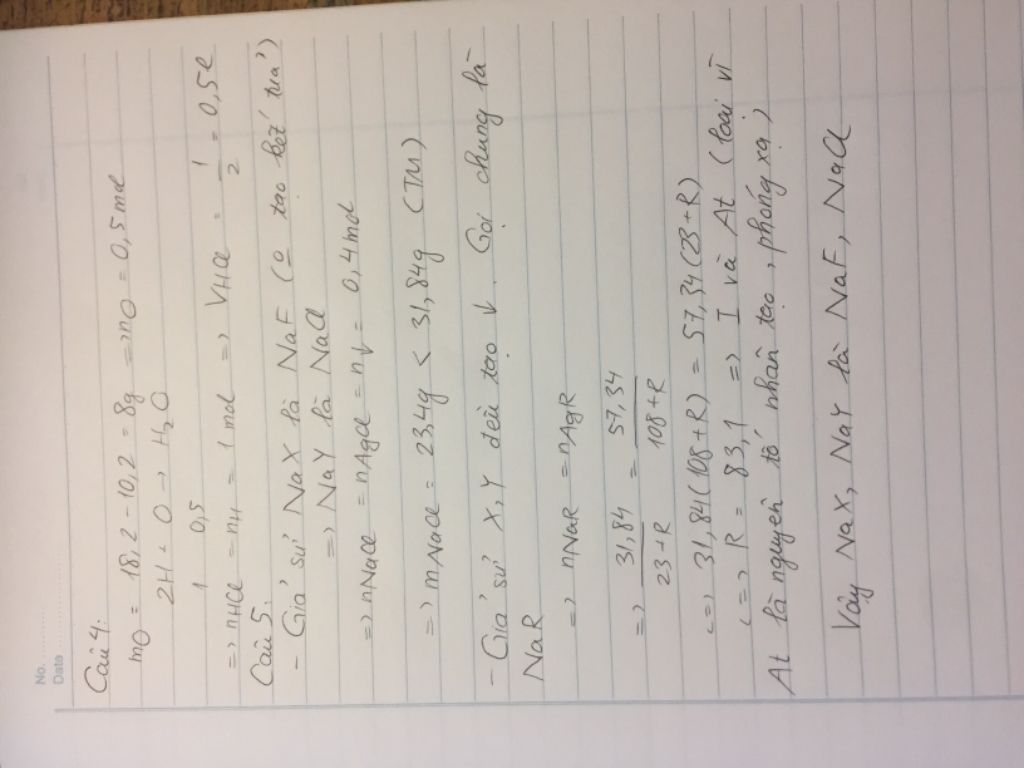 No. ............
Date ..................
Câu 4.
mO = 18,2 - 10,2 = 8g => nO = 0,5 mol
2H + O → H2O
1 0,5
=> nHCl = nH = 1 mol => VHCl = 1/2 = 0,5l
Câu 5.
- Giả sử NaX là NaF (o tạo kết tủa)
=> NaY là NaCl
=> nNaCl = nAgCl = n↓ = 0,4 mol
=> mNaCl = 23,4g < 31,84g (TM)
- Giả sử X, Y đều tạo ↓. Gọi chung là
NaR
=> nNaR = nAgR
=> 31,84/23+R = 57,34/108+R
<=> 31,84(108+R) = 57,34(23+R)
<=> R = 83,1 => I và At (loại vì
At là nguyên tố nhân tạo, phóng xạ)
Vậy NaX, NaY là NaF, NaCl